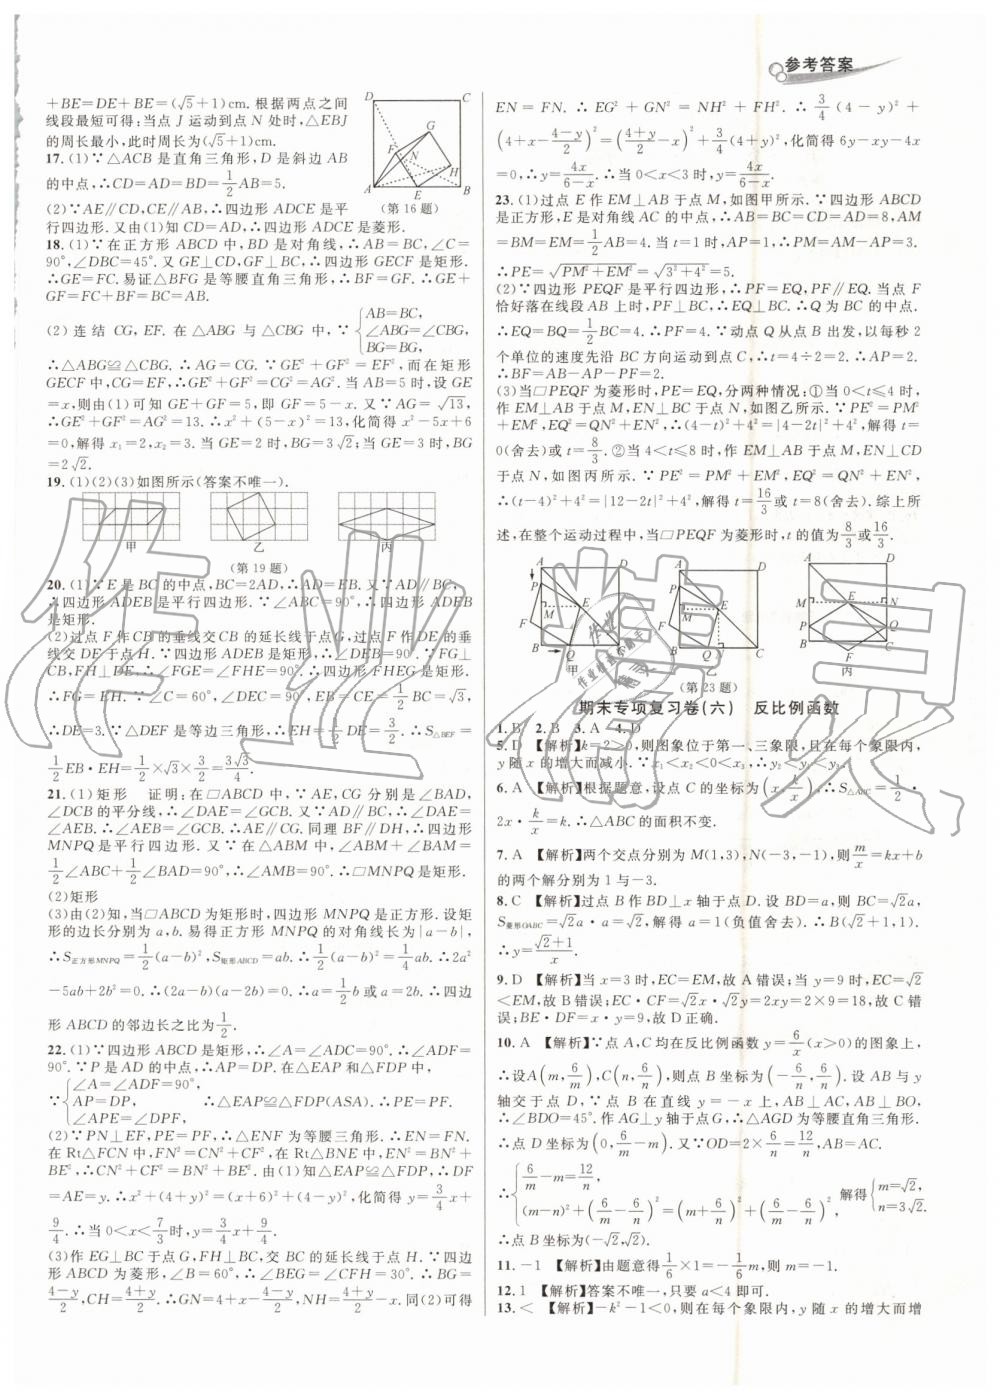 参考答案
+BE=DE+BE=(√5+1)cm. 根据两点之间
线段最短可得:当点 J 运动到点 N 处时,△EBJ
的周长最小,此时周长为(√5+1)cm.
17.(1)∵△ACB 是直角三角形,D 是斜边 AB
的中点,∴CD=AD=BD=1/2AB=5.
(2)∵AE∥CD,CE∥AB,∴四边形 ADCE 是平
行四边形. 又由(1)知 CD=AD,∴四边形 ADCE 是菱形.
(第 16 题)
18.(1)∵在正方形 ABCD 中,BD 是对角线,∴AB=BC,∠C=
90°,∠DBC=45°. 又 GE⊥CD,GF⊥BC,∴四边形 GECF 是矩形.
∴GE=FC. 易证△BFG 是等腰直角三角形,∴BF=GF. ∴GE+
GF=FC+BF=BC=AB.
(2) 连结 CG,EF. 在△ABG 与△CBG 中,∵{AB=BC, ∠ABG=∠CBG, BG=BG,
∴△ABG≌△CBG. ∴AG=CG. ∵GE²+GF²=EF²,而在矩形
GECF 中,CG=EF,∴GE²+GF²=CG²=AG². 当 AB=5 时,设 GE
=x,则由(1)可知 GE+GF=5,即 GF=5-x. 又∵AG=√13,
∴GE²+GF²=AG²=13. ∴x²+(5-x)²=13,化简得 x²-5x+6
=0,解得 x₁=2,x₂=3. 当 GE=2 时,BG=3√2;当 GE=3 时,BG
=2√2.
19.(1)(2)(3)如图所示(答案不唯一).
甲 乙 丙
(第 19 题)
20.(1)∵E 是 BC 的中点,BC=2AD,∴AD=EB. 又∵AD∥BC,
∴四边形 ADEB 是平行四边形. ∵∠ABC=90°,∴四边形 ADEB
是矩形.
(2)过点 F 作 CB 的垂线交 CB 的延长线于点 G,过点 F 作 DE 的垂
线交 DE 于点 H. ∵四边形 ADEB 是矩形,∴∠DEB=90°. ∵FG⊥
CB,FH⊥DE,∴∠FGE=∠FHE=90°. ∴四边形 FHEG 是矩形.
∴FG=EH. ∵∠C=60°,∠DEC=90°,EB=CE=1/2BC=√3,
∴DE=3. ∵△DEF 是等边三角形,∴EH=1/2DE=3/2. ∴S△BEF=
1/2EB·EH=1/2×√3×3/2=3√3/4.
21.(1)矩形 证明:在▱ABCD 中,∵AE,CG 分别是∠BAD,
∠DCB 的平分线,∴∠DAE=∠GCB. 又∵AD∥BC,∴∠DAE=
∠AEB. ∴∠AEB=∠GCB. ∴AE∥CG. 同理 BF∥DH,∴四边形
MNPQ 是平行四边形. 又∵在△ABM 中,∠ABM+∠BAM=
1/2∠ABC+1/2∠BAD=90°,∴∠AMB=90°. ∴▱MNPQ 是矩形.
(2)矩形
(3)由(2)知,当▱ABCD 为矩形时,四边形 MNPQ 是正方形. 设矩
形的边长分别为 a,b. 易得正方形 MNPQ 的对角线长为|a-b|,
∴S正方形MNPQ=1/2(a-b)²,S矩形ABCD=ab. ∴1/2(a-b)²=1/4ab. ∴2a²
-5ab+2b²=0. ∴(2a-b)(a-2b)=0. ∴a=1/2b 或 a=2b. ∴四边
形 ABCD 的邻边长之比为1/2.
22.(1)∵四边形 ABCD 是矩形,∴∠A=∠ADC=90°. ∴∠ADF=
90°. ∵P 是 AD 的中点,∴AP=DP. 在△EAP 和△FDP 中,
∵{∠A=∠ADF=90°, AP=DP, ∠APE=∠DPF, ∴△EAP≌△FDP(ASA). ∴PE=PF.
(2)∵PN⊥EF,PE=PF,∴△ENF 为等腰三角形. ∴EN=FN.
在 Rt△FCN 中,FN²=CN²+CF². 在 Rt△BNE 中,EN²=BN²+
BE²,∴CN²+CF²=BN²+BE². 由(1)知△EAP≌△FDP,∴DF
=AE=y. ∴x²+(4+y)²=(x+6)²+(4-y)²,化简得 y=3/4x+
9/4. ∴当 0<x<7/3时,y=3/4x+9/4.
(3)作 EG⊥BC 于点 G,FH⊥BC,交 BC 的延长线于点 H. ∵四边
形 ABCD 为菱形,∠B=60°,∴∠BEG=∠CFH=30°. ∴BG=
(4-y)/2,CH=(4+y)/2. ∴GN=4+x-(4-y)/2,NH=(4+y)/2-x. 同(2)可得
EN=FN. ∴EG²+GN²=NH²+FH². ∴3/4(4-y)²+
(4+x-(4-y)/2)²=((4+y)/2-x)²+3/4(4+y)²,化简得 6y-xy-4x
=0,∴y=4x/(6-x). ∴当 0<x<3 时,y=4x/(6-x).
23.(1)过点 E 作 EM⊥AB 于点 M,如图甲所示. ∵四边形 ABCD
是正方形,E 是对角线 AC 的中点,∴AB=BC=CD=AD=8,AM
=BM=EM=1/2AB=4. 当 t=1 时,AP=1,∴PM=AM-AP=3.
∴PE=√(PM²+EM²)=√(3²+4²)=5.
(2)∵四边形 PEQF 是平行四边形,∴PF=EQ,PF∥EQ. 当点 F
恰好落在线段 AB 上时,PF⊥BC,∴EQ⊥BC. ∴Q 为 BC 的中点.
∴EQ=BQ=1/2BC=4. ∴PF=4. ∵动点 Q 从点 B 出发,以每秒 2
个单位的速度先沿 BC 方向运动到点 C,∴t=4÷2=2. ∴AP=2.
∴BF=AB-AP-PF=2.
(3)当▱PEQF 为菱形时,PE=EQ,分两种情况:①当 0<t≤4 时,
作 EM⊥AB 于点 M,EN⊥BC 于点 N,如图乙所示. ∵PE²=PM²
+EM²,EQ²=QN²+EN²,∴(4-t)²+4²=|4-2t|²+4²,解得 t=
0(舍去)或 t=8/3. ②当 4<t≤8 时,作 EM⊥AB 于点 M,EN⊥CD
于点 N,如图丙所示. ∵PE²=PM²+EM²,EQ²=QN²+EN²,
∴(t-4)²+4²=|12-2t|²+4²,解得 t=16/3或 t=8(舍去). 综上所
述,在整个运动过程中,当▱PEQF 为菱形时,t 的值为8/3或16/3.
甲 乙 丙
(第 23 题)
期末专项复习卷(六) 反比例函数
1. B 2. B 3. A 4. D
5. D 【解析】k=2>0,则图象位于第一、三象限,且在每个象限内,
y 随 x 的增大而减小. ∵x₁<x₂<0<x₃,∴y₂<y₁<y₃.
6. A 【解析】根据题意,设点 C 的坐标为(x,k/x),∴S△ABC=1/2·
2x·k/x=k. ∴△ABC 的面积不变.
7. A 【解析】两个交点分别为 M(1,3),N(-3,-1),则m/x=kx+b
的两个解分别为 1 与-3.
8. C 【解析】过点 B 作 BD⊥x 轴于点 D. 设 BD=a,则 BC=√2a,
S菱形OABC=√2a·a=√2,解得 a=1(负值舍去). ∴B(√2+1,1).
∴y=(√2+1)/x.
9. D 【解析】当 x=3 时,EC=EM,故 A 错误;当 y=9 时,EC=√2
<EM,故 B 错误;EC·CF=√2x·√2y=2xy=2×9=18,故 C 错
误;BE·DF=x·y=9,故 D 正确.
10. A 【解析】∵点 A,C 均在反比例函数 y=6/x(x>0)的图象上,
∴设A(m,6/m),C(n,6/n),则点 B 坐标为(-6/n,6/n). 设 AB 与 y
轴交于点 D,∵点 B 在直线 y=-x 上,AB⊥AC,AB⊥BO,
∴∠BDO=45°. 作 AG⊥y 轴于点 G,∴△AGD 为等腰直角三角形.
∴点 D 坐标为(0,6/m-m). 又∵OD=2×6/n=12/n,AB=AC.
∴{6/m-m=12/n, (m-n)²+(6/m-6/n)²=(m+6/n)²+(6/m-6/n)², 解得{m=√2, n=3√2.
∴点 B 坐标为(-√2,√2).
11. -1 【解析】由题意得1/6×1=-1/6m,则 m=-1.
12. 1 【解析】答案不唯一,只要 a<4 即可.
13. < 【解析】-k²-1<0,则在每个象限内,y 随 x 的增大而增